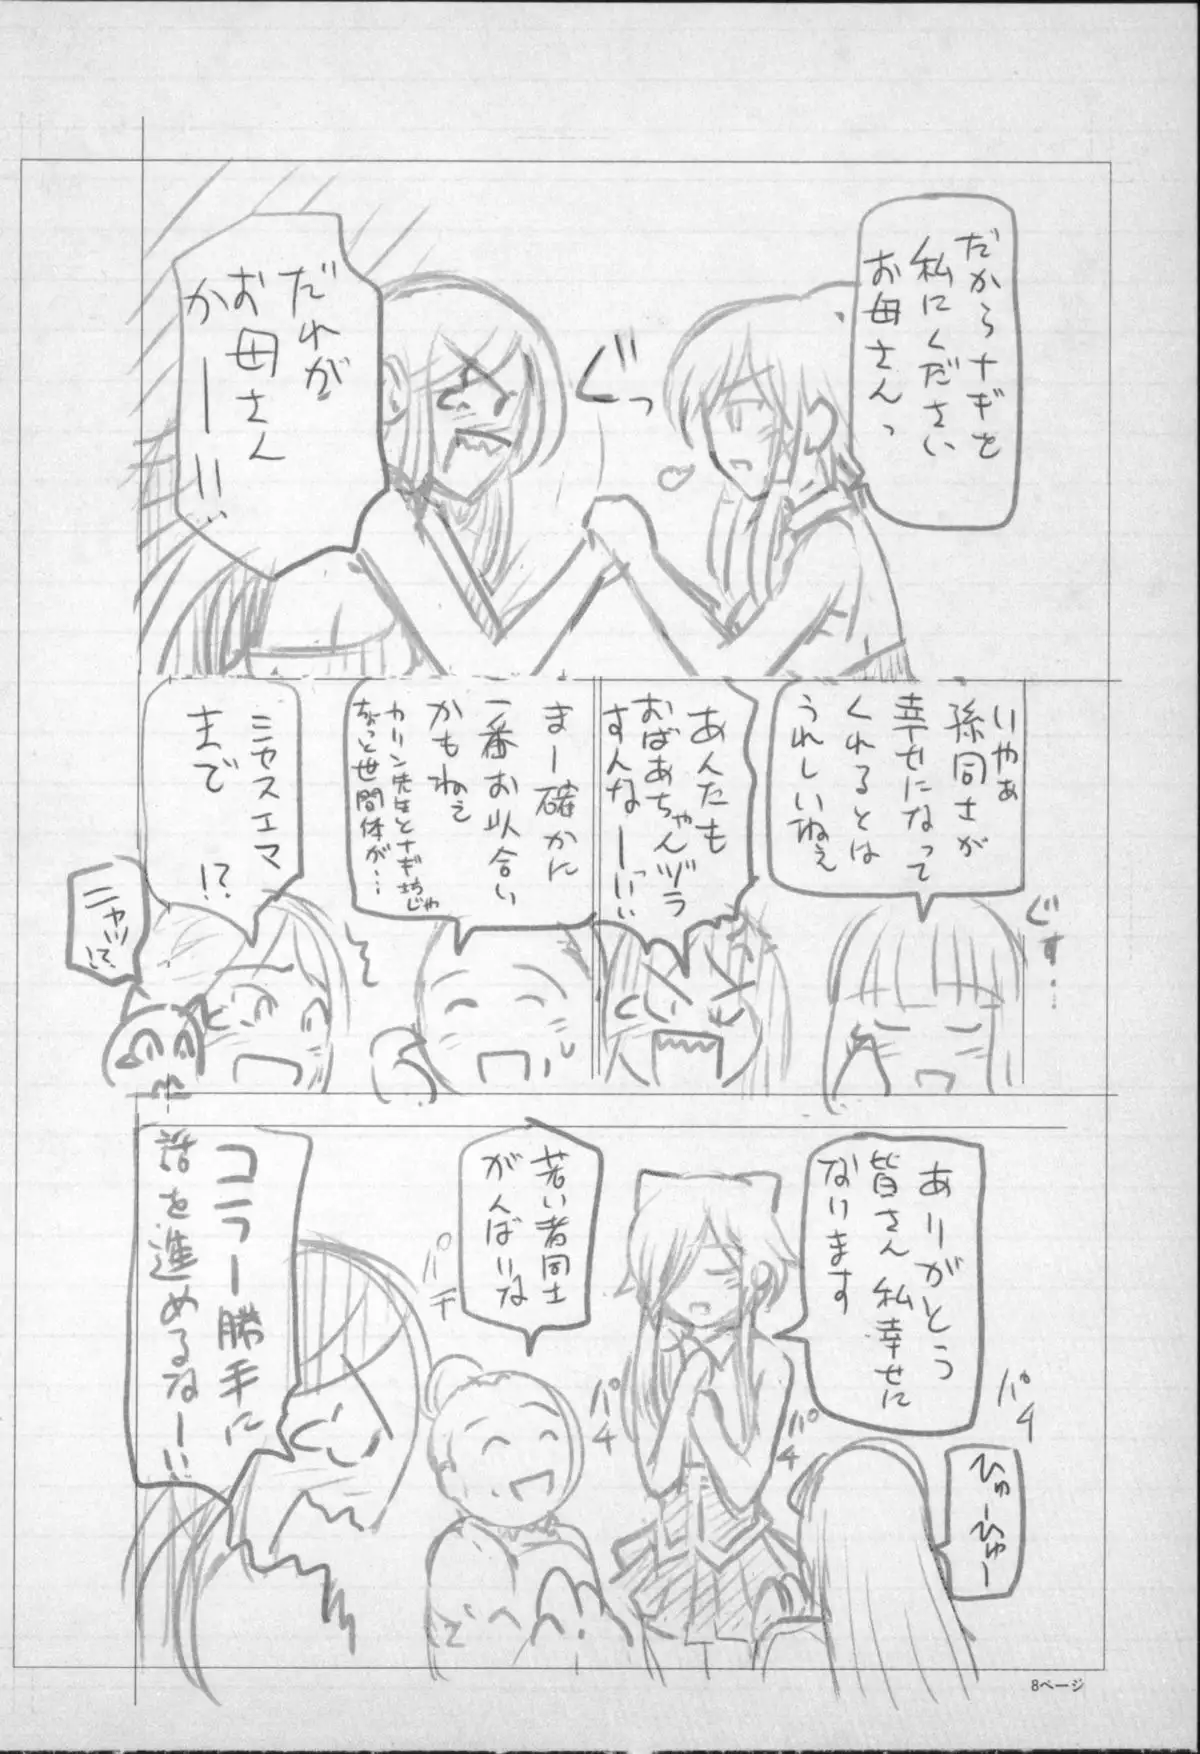 だからナギを
私にください
お母さんっ
ぐっ
だれが
お母さん
かーーっ!!
いやぁ
孫同士が
幸せになって
くれるとは
うれしいねぇ
ぐす…
あんたも
おばあちゃんヅラ
すんなーっ!!
まー確かに
一番お似合い
かもねぇ
カリン先生とナギ坊じゃ
ちょっと世間体が…
ミヤスエマ
まで
!?
ニャッ!?
ありがとう
皆さん 私幸せに
なります
ひゅーひゅー
パチ
パチ
パチ
若い者同士
がんばいな
パチ
コラー勝手に
話を進めるなー!!
8ページ